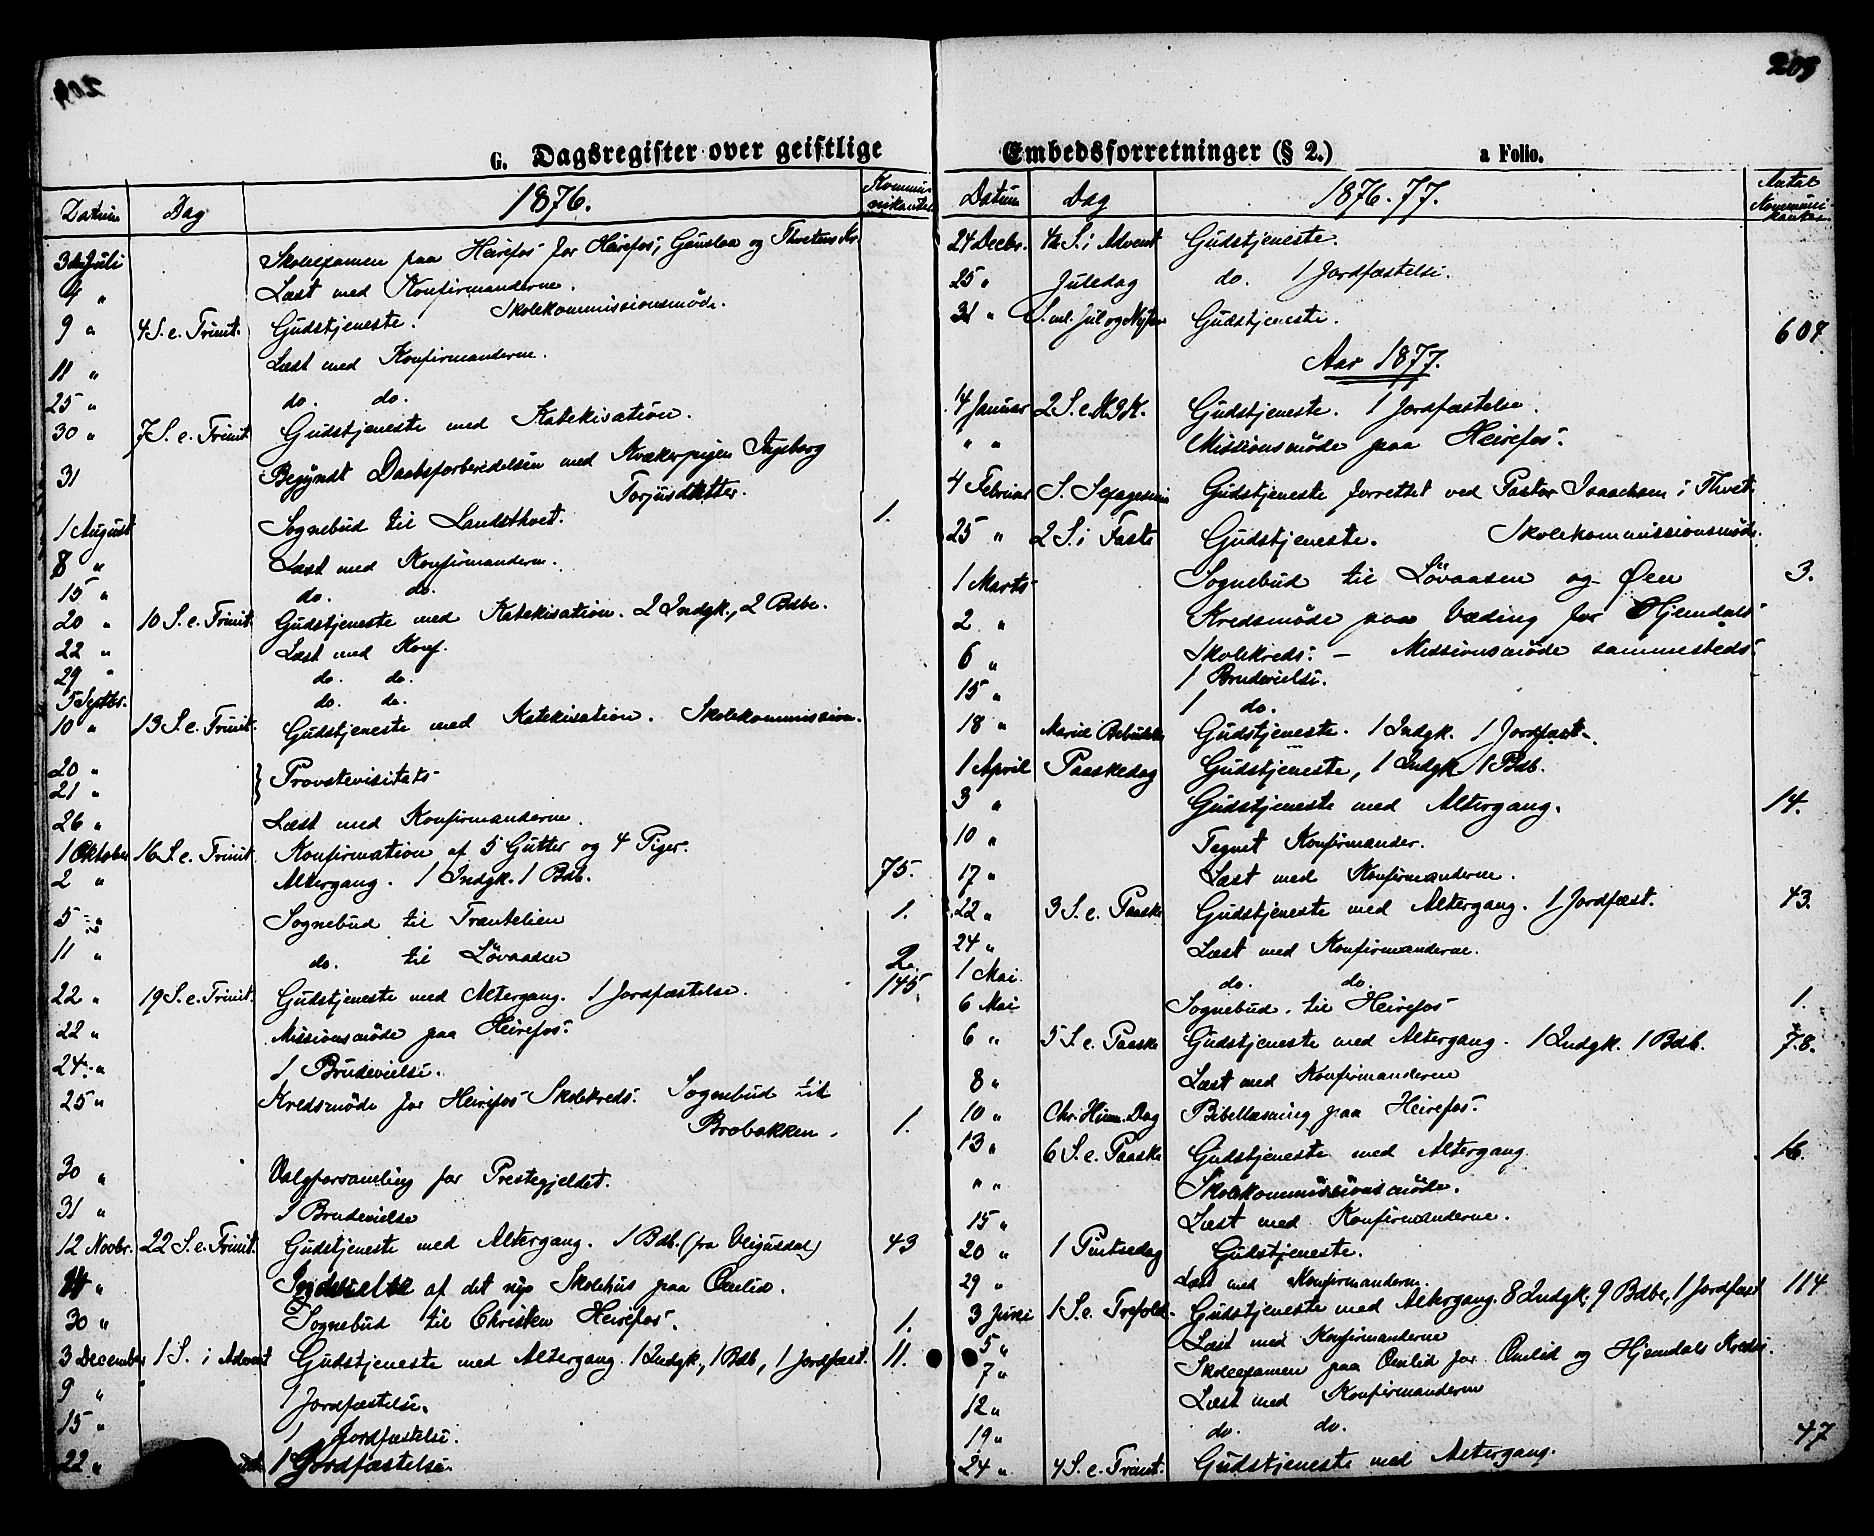 204
G. Dagsregister over geistlige
Datum Dag 1876. Kommunikanter
3die Juli Skoleexamen paa Heirefos for Heirefos, Gauslaa og Thvetens Kr.
4 " Læst med Konfirmanderne.
9 " 4 S. e. Trinit. Gudstjeneste. Skolekommissionsmøde.
11 " Læst med Konfirmanderne.
25 " do. do.
30 " 7 S. e. Trinit. Gudstjeneste med Katekisation.
31 Begyndt Daabsforberedelsen med Kvækerpigen Ingeborg
Torjusdatter.
1 August Sognebud til Landsthvet. 1.
8 " Læst med Konfirmanderne.
15 " do. do.
20 " 10 S. e. Trinit. Gudstjeneste med Katekisation. 2 Indgk., 2 Bdbe.
22 " Læst med Konf.
29 " do. do.
5 Septbr. do. do.
10 " 13 S. e. Trinit. Gudstjeneste med Katekisation. Skolekommission.
20 "
21 " } Provstevisitats
26 " Læst med Konfirmanderne.
1 Oktober 16 S. e. Trinit. Konfirmation af 5 Gutter og 4 Piger.
2 " Altergang. 1 Indgk. 1 Bdb. 75.
5 " Sognebud til Træntelien 1.
11 " do. til Løvaasen 2.
22 " 19 S. e. Trinit. Gudstjeneste med Altergang. 1 Jordfæstelse. 145
22 " Missionsmøde paa Heirefos.
24 " 1 Brudevielse.
25 " Kredsmøde for Heirefos Skolekreds. Sognebud til
Brobakken. 1.
30 " Valgforsamling for Prestegjeldet.
31 " 1 Brudevielse
12 Novbr. 22 S. e. Trinit. Gudstjeneste med Altergang. 1 Bdb. (fra Vegusdal) 43
14 " Indvielse af det nye Skolehus paa Omlid.
30 " Sognebud til Christen Heirefos. 1.
3 December 1 S. i Advent Gudstjeneste med Altergang. 1 Indgk., 1 Bdb, 1 Jordfæst. 11.
9 " 1 Jordfæstelse.
15 " 1 Jordfæstelse.
22 " 1 Jordfæstelse.
205
Embedsforretninger (§ 2.) a Folio.
Datum Dag 1876.77. Antal Kommunikanter.
24 Decbr. 4de S. i Advent Gudstjeneste.
25 " Juledag do. 1 Jordfæstelse.
31 " S. ml. Jul og Nytaar Gudstjeneste. 607
Aar 1877.
14 Januar 2 S. e. H. 3 K. Gudstjeneste. 1 Jordfæstelse.
" " Missionsmøde paa Heirefos.
4 Februar S. Sexagesima Gudstjeneste forrettet ved Pastor Isaachsen i Thvet.
25 " 2 S. i Faste Gudstjeneste. Skolekommissionsmøde.
1 Marts Sognebud til Løvaasen og Øen 3.
2 " Kredsmøde paa Væding for Hjemdals
6 " Skolekreds. — Missionsmøde sammesteds.
15 " 1 Brudevielse.
1 do.
18 " Mariæ Bebudelse Gudstjeneste. 1 Indgk. 1 Jordfæst.
1 April Paaskedag Gudstjeneste, 1 Indgk 1 Bdb.
3 " Gudstjeneste med Altergang. 14.
10 " Tegnet Konfirmander.
17 " Læst med Konfirmanderne.
22 " 3 S. e. Paaske Gudstjeneste med Altergang. 1 Jordfæst. 43.
24 " Læst med Konfirmanderne.
1 Mai do. do.
6 Mai Sognebud til Heirefos 1.
6 " 5 S. e. Paaske Gudstjeneste med Altergang. 1 Indgk. 1 Bdb. 78.
8 " Læst med Konfirmanderne
10 " Chr. Himm. Dag Bibellæsning paa Heirefos.
13 " 6 S. e. Paaske Gudstjeneste med Altergang 16.
" " Skolekommissionsmøde.
15 " Læst med Konfirmanderne.
20 " 1 Pintsedag Gudstjeneste.
29 " Læst med Konfirmanderne.
3 Juni 1 S. e. Trefold. Gudstjeneste med Altergang. 8 Indgk. 9 Bdbe, 1 Jordfæst 114
5 " Læst med Konfirmanderne
7 " Skoleexamen paa Omlid for Omlid og Hjemdals Kreds.
12 " Læst med Konfirmanderne
19 " do. do.
24 " 4 S. e. Trinit. Gudstjeneste med Altergang. 47